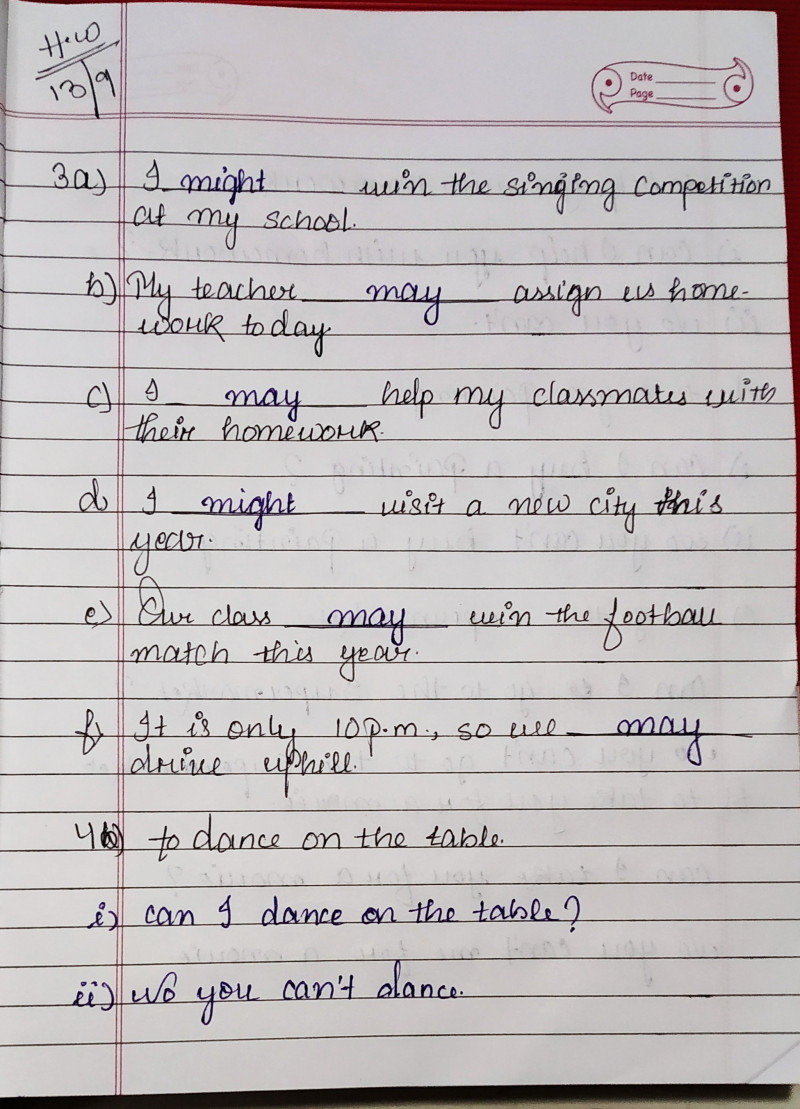 H.W
13/9
Date
Page
3a) I might win the singing competition
at my school.
b) My teacher may assign us home-
work today
c) I may help my classmates with
their homework.
d) I might visit a new city this
year.
e) Our class may win the football
match this year.
f) It is only 10 p.m., so we may
drive uphill.
4b) to dance on the table.
i) can I dance on the table?
ii) No you can't dance.